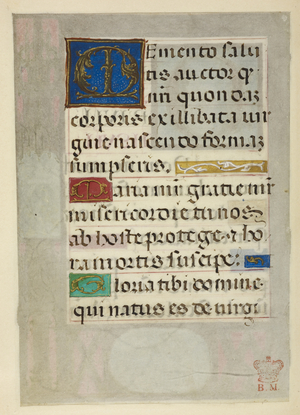 Memento salu
tis auctor qꝫ
nr̄i quondaꝫ
corporis ex illibata vir
gine nascendo formaꝫ
sumpseris.
Maria mr̄ gratie mr̄
misericordie tu nos
ab hoste protege ⁊ ho
ra mortis suscipe:
Gloria tibi domine
qui natus es de virgi
B. M.